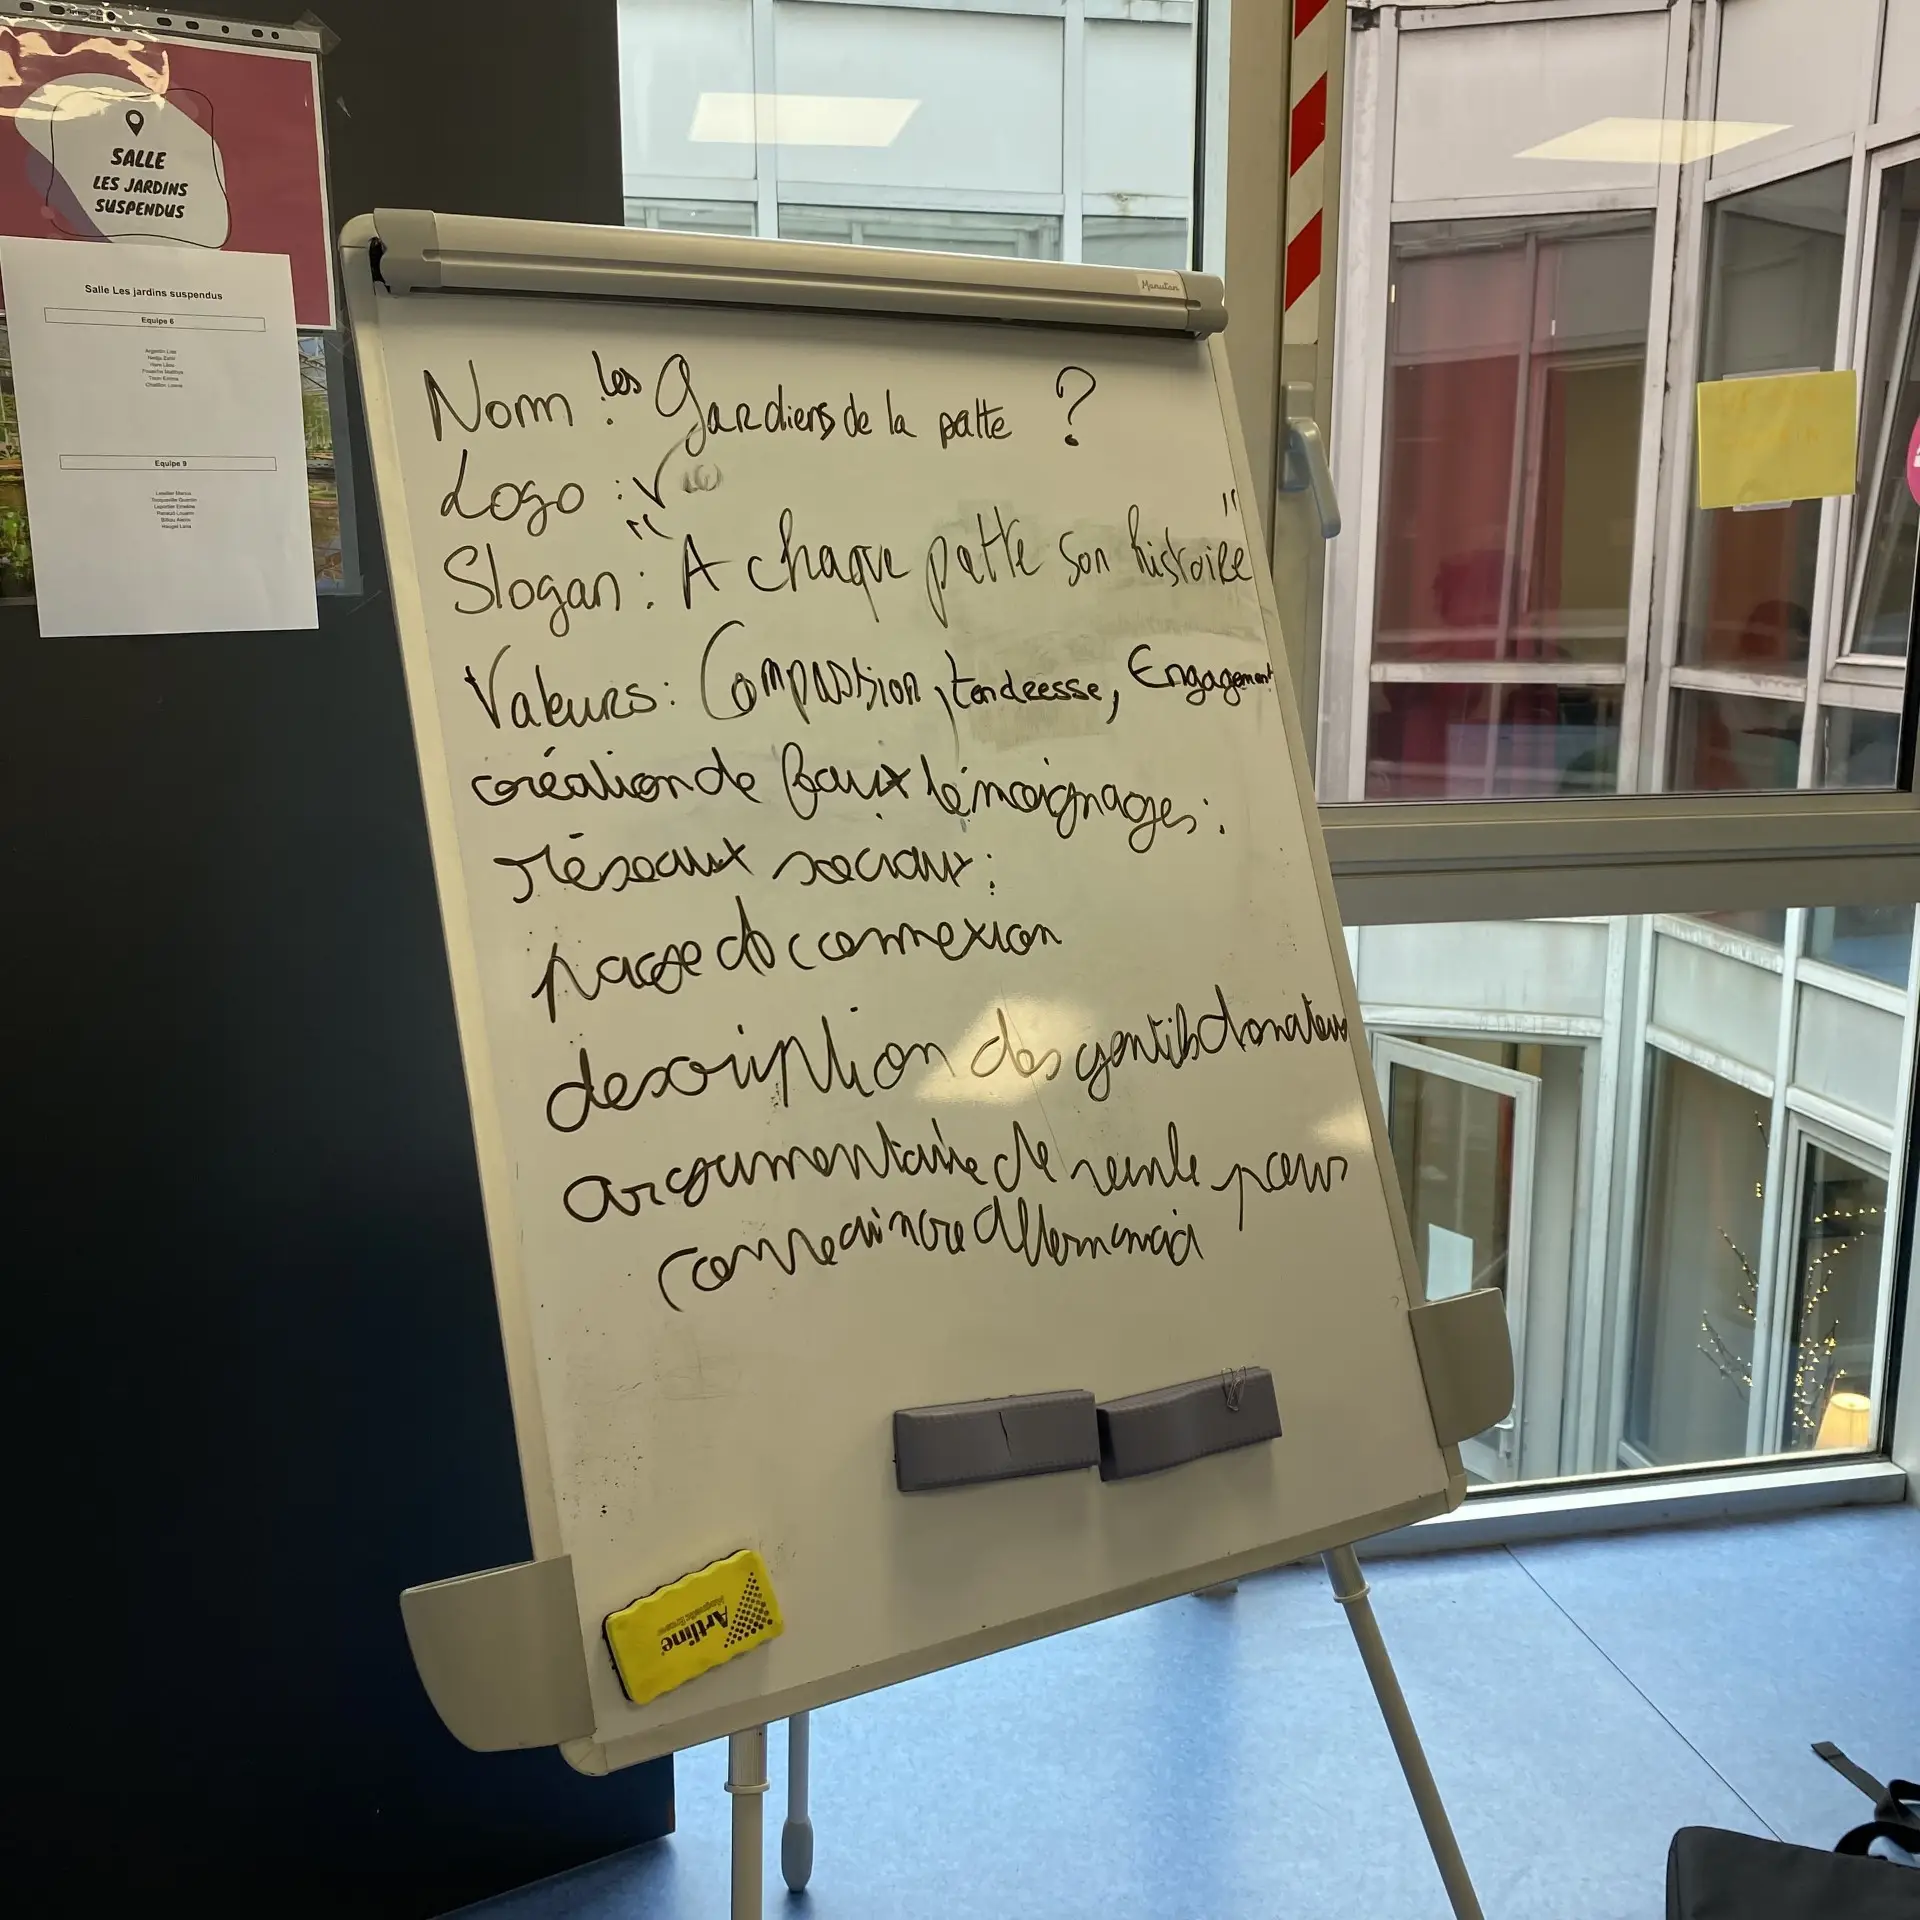 SALLE
LES JARDINS
SUSPENDUS
Salle Les jardins suspendus
Equipe 6
Equipe 9
Manutan
Nom : les Gardiens de la patte ?
Logo : V
Slogan : "A chaque patte son histoire"
Valeurs : Compassion, tendresse, Engagement
création de faux témoignages :
réseaux sociaux :
page de connexion
description des gentils donateurs
argumentaire de vente pour
convaincre Allemand
Artline